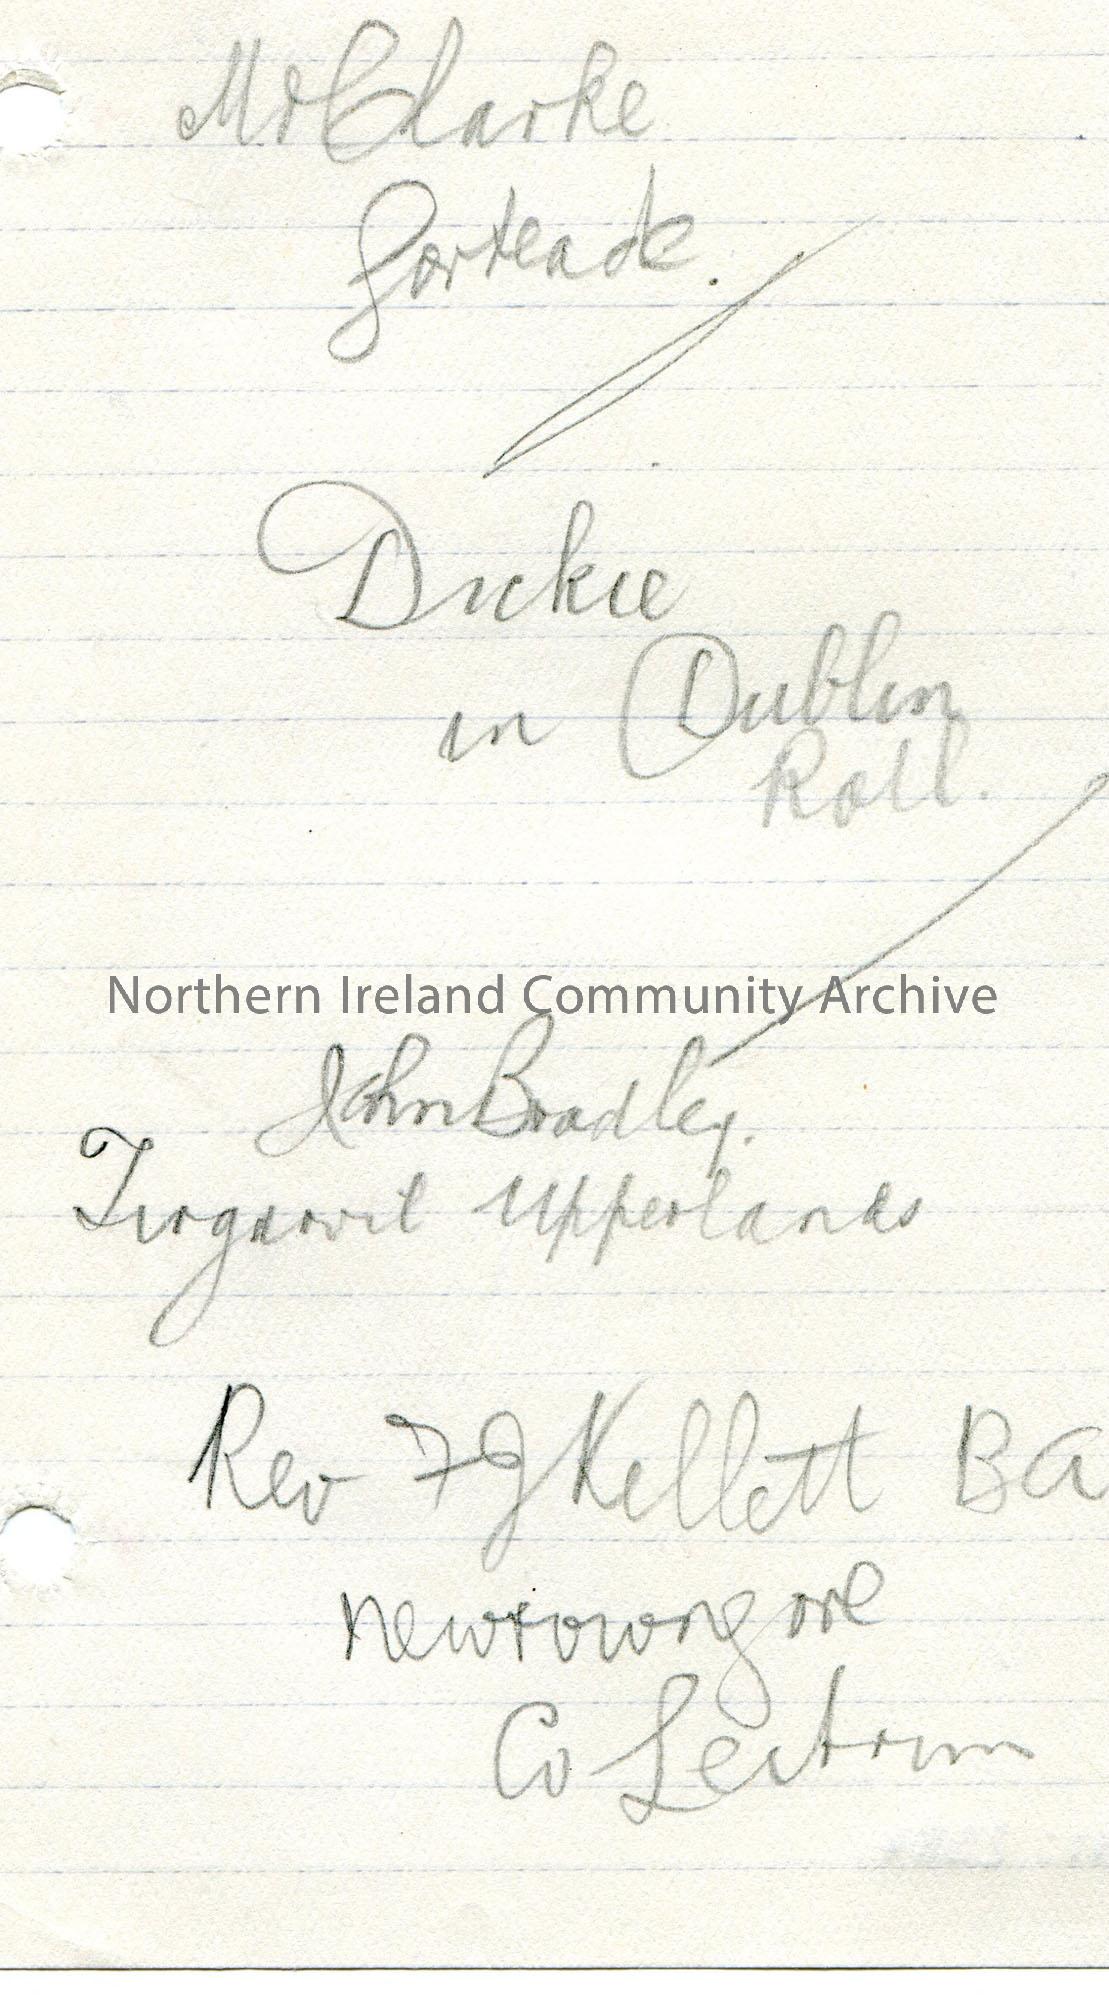 Mr Clarke
Gorteade.
Dickie
in Dublin
Roll.
Northern Ireland Community Archive
John Bradley.
Tirgarvil Upperlands
Rev F J Kellett BA
Newtowngore
Co Leitrim